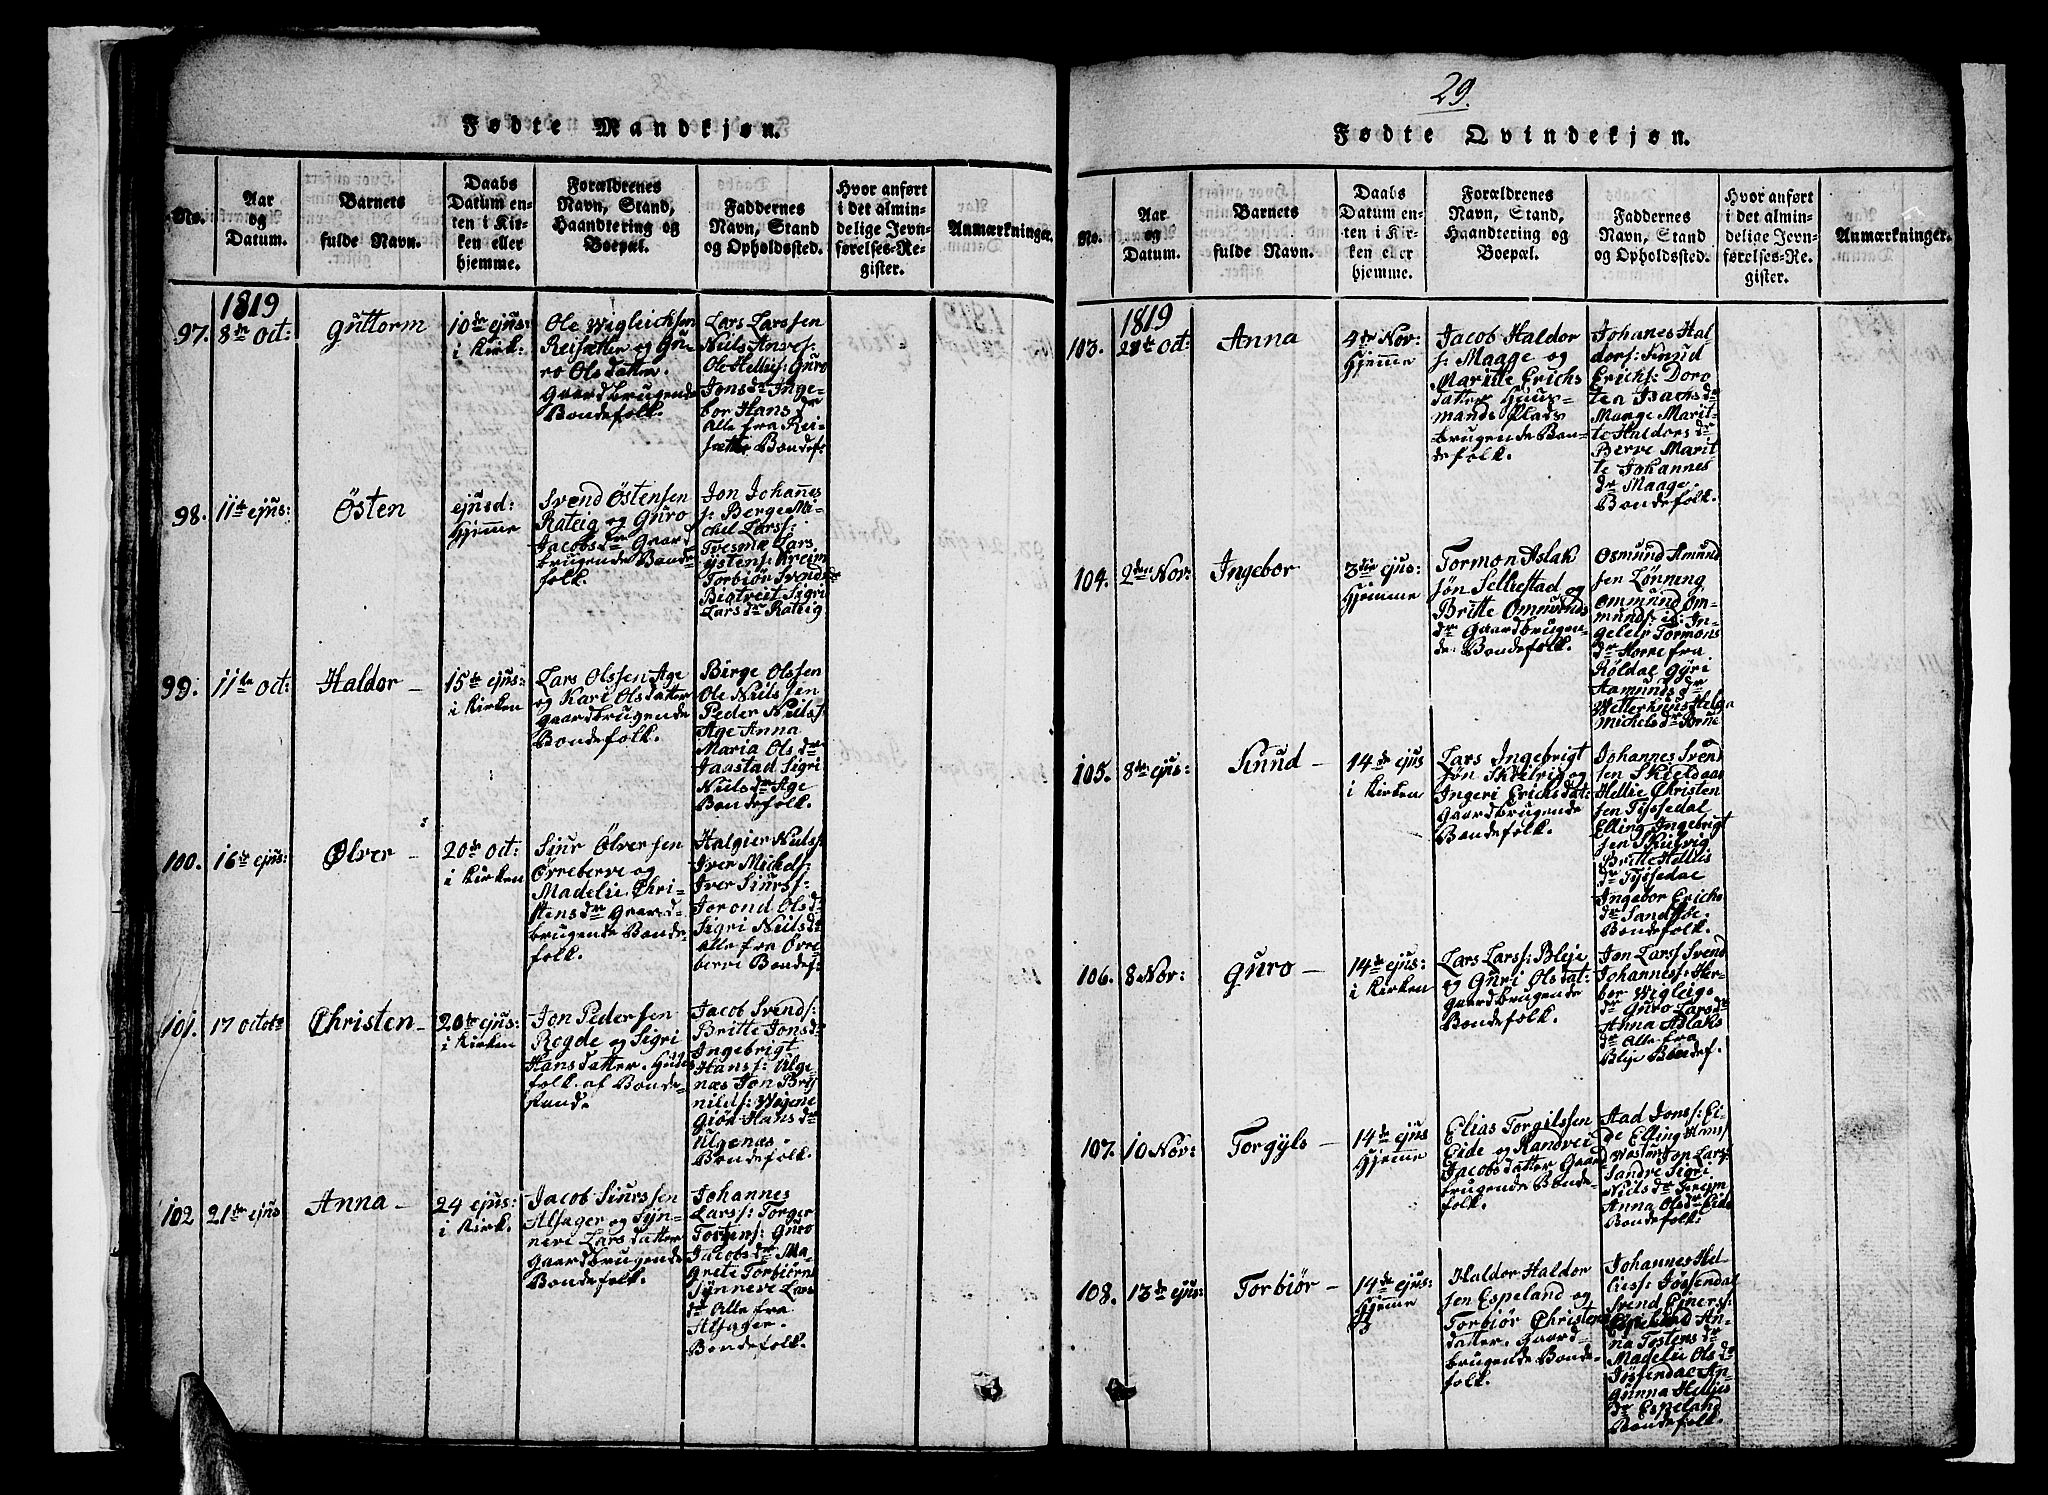 Fødte Mandkjøn.
No.
Aar
og
Datum.
Barnets
fulde Navn.
Daabs
Datum en-
ten i Kir-
ken eller
hjemme.
Forældrenes
Navn, Stand,
Haandtering og
Boepæl.
Faddernes
Navn, Stand
og Opholdssted.
Hvor anført
i det almin-
delige Jevn-
førelses-Re-
gister.
Anmærkninger.
1819
97.
8de Oct:
Guttorm
10de ejus:
i Kirk:
Ole Wigleichsen
Reisæter og Gu-
ro Olsdatter.
Gaardbrugende
Bondefolk.
Lars Larssen
Niels Andrs:
Ole Hellies: Guro
Jonsdr Inge-
bor Hans dr
Alle fra Rei-
sætter Bondef:
98.
11te ejus:
Østen
ejusd:
Hjemme
Svend Østensen
Rateig og Guro
Jacobsdr Gaard
brugende Bonde
folk.
Jon Johannes
s: Berge Mi-
chel Larss:
Tvesmæ Lars
Østens: Freim
Torbiør Svendsdr
Bigtreit Sigri
Larsdr Rateig
99.
11te Oct:
Haldor –
15te ejus:
i Kirken
Lars Olssen Age
og Kari Olsdatter
Gaardbrugende
Bondefolk.
Børge Olssen
Ole Nielssen
Peder Nielss:
Age Anna
Maria Olsdr
Jaastad Sigri
Nielsdr Age
Bondefolk.
100.
16te ejus:
Ølver –
20de Oct:
i Kirken
Siur Ølversen
Øvreberve og
Madelie Chri-
stensdr Gaard-
brugende Bonde-
folk.
Halgier Nielss:
Iver Michels:
Iver Siurss:
Jorond Olsd:
Sigri Nielsdr
Alle fra Øvre
berve Bondef:
101.
17 Octobr
Christen –
20de ejus:
i Kirken
Jon Pedersen
Rogde og Sigri
Hansdatter. Huus
folk af Bonde-
stand.
Jacob Svends:
Britte Jonsdr
Ingebrigt
Hanss: Ulge
næs Jon Bry
nilds:
Giør Hansdr
Ulgenæs.
Bondefolk.
102
21de ejus
Anna –
24 ejus:
i Kirk.
Jacob Siurssen
Alsager og Syn-
neve Larsdatter
Gaardbrugende
Bondefolk.
Johannes
Larss: Torger
Tostens: Guro
Jacobsdr Ma-
grete Torbiørns
Synneve Lars
dr Alle fra
Alsager.
Bondefolk.
29.
Fødte Qvindekjøn.
No.
Aar
og
Datum.
Barnets
fulde Navn.
Daabs
Datum en-
ten i Kir-
ken eller
hjemme.
Forældrenes
Navn, Stand,
Haandtering og
Boepæl.
Faddernes
Navn, Stand
og Opholdssted.
Hvor anført
i det almin-
delige Jevn-
førelses-Re-
gister.
Anmærkninger.
1819
103.
28de Oct:
Anna
4de Nov:
Hjemme
Jacob Haldor
s: Maage og
Maritte Erichs
datter Huus-
mands Plads
brugende Bon-
defolk.
Johanes Hal-
dors: Knud
Erichs: Doro
tea Isachsdr
Maage Marit-
te Haldorsdr
Berve Marit
te Johannes
dr Maage.
Bondefolk.
104.
2den Nov:
Ingebor
3die ejus:
Hjemme
Tormon Aslak
søn Selliestad og
Britte Ommunds
dr Gaardbrugen-
de Bondefolk.
Osmund Amund
sen Lønning
Ommund Om-
munds: id: In-
geleiv Tormons
dr Horre fra
Røldal Gyri
Aamundsdr
Wetterhuus Helga
Michelsdr
105.
8de ejus:
Knud –
14de ejus
i Kirken
Lars Ingebrigt
søn Skielvig og
Ingeri Erichsdat:
Gaardbrugende
Bondefolk.
Johannes Svend
sen Skieldaas
Hellie Christen
sen Tyssedal
Elling Ingebrigt
sen Skielvig
Britte Hellies
dr Tyssedal
Ingebor Erichs
dr Sandføe.
Bondefolk.
106.
8 Nov:
Guro –
14de ejus:
i Kirken
Lars Larss: Bleje
og Guri Olsdat:
Gaardbrugende
Bondefolk.
Jon Larss: Svend
Johanness: Her-
bor Wigleigs
dr Guro Larsdr
Anna Aslaks
dr Alle fra
Bleje Bondef.
107.
10 Nov:
Torgyls –
14de ejus
Hjemme
Elias Torgilssen
Eide og Randvei
Jacobsdatter Gaard
brugende Bonde-
folk.
Aad Jonss: Ei-
de Elling Hans
Jon Larss:
Sandre Sigri
Nielsdr Freim
Anna Olsdr Eide
Bondefolk.
108.
13de ejus:
Torbiør –
14de ejus:
Hjemme
Haldor Haldor
sen Espeland og
Torbiør Christens
datter. Gaard-
brugende Bonde-
folk.
Johannes Hel-
lies: Jøssendal
Svend Ejners:
Espeland An-
na Tostensdr
Madelie Olsdr
Jøssendal An-
gunna Hellies
dr Espeland
Bondefolk.